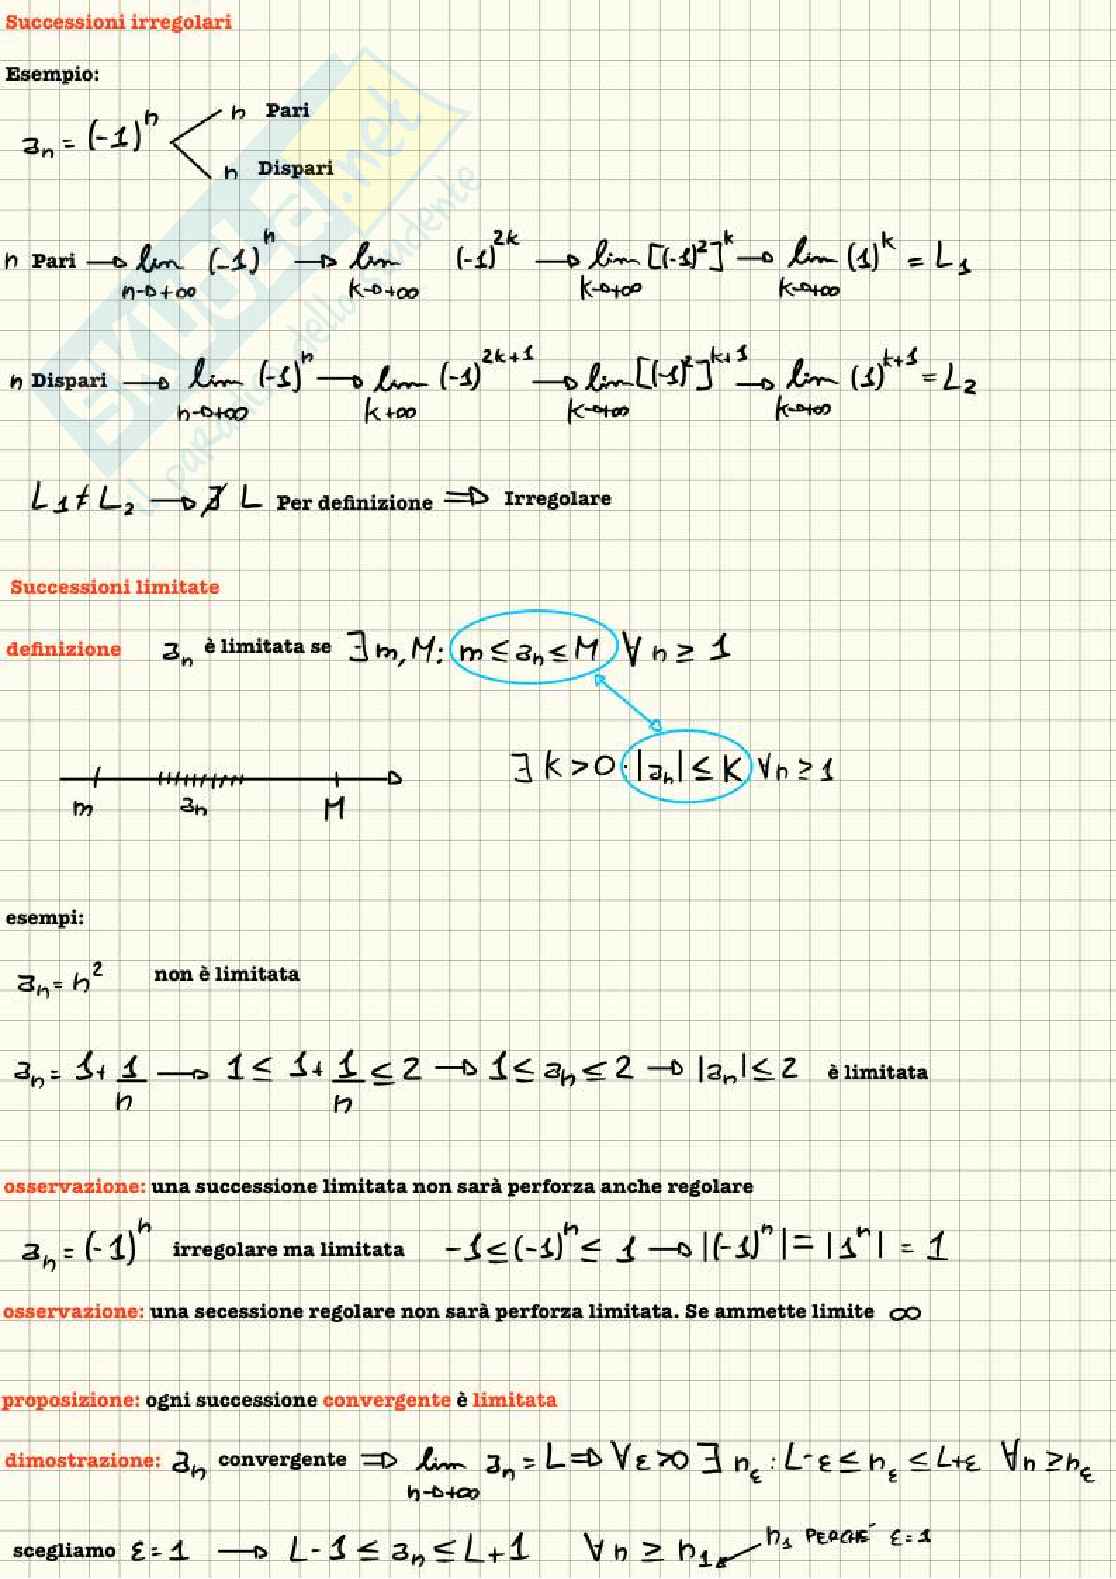 Successioni irregolari
Esempio:
aₙ = (-1)ⁿ < n Pari
n Dispari
n Pari → lim n→+∞ (-1)ⁿ → lim k→+∞ (-1)^2k → lim k→+∞ [(-1)²]^k → lim k→+∞ (1)^k = L₁
n Dispari → lim n→+∞ (-1)ⁿ → lim k+∞ (-1)^2k+1 → lim k→+∞ [(-1)²]^k+1 → lim k→+∞ (1)^k+1 = L₂
L₁ ≠ L₂ → ∄ L Per definizione ⇒ Irregolare
Successioni limitate
definizione aₙ è limitata se ∃ m, M: m ≤ aₙ ≤ M ∀ n ≥ 1
∃ k > 0 : |aₙ| ≤ K ∀ n ≥ 1
m aₙ M
esempi:
aₙ = n² non è limitata
aₙ = 1 + 1/n → 1 ≤ 1 + 1/n ≤ 2 → 1 ≤ aₙ ≤ 2 → |aₙ| ≤ 2 è limitata
osservazione: una successione limitata non sarà perforza anche regolare
aₙ = (-1)ⁿ irregolare ma limitata -1 ≤ (-1)ⁿ ≤ 1 → |(-1)ⁿ| = |1ⁿ| = 1
osservazione: una secessione regolare non sarà perforza limitata. Se ammette limite ∞
proposizione: ogni successione convergente è limitata
dimostrazione: aₙ convergente ⇒ lim n→+∞ aₙ = L ⇒ ∀ ε>0 ∃ n_ε : L-ε ≤ n_ε ≤ L+ε ∀ n ≥ n_ε
scegliamo ε = 1 → L-1 ≤ aₙ ≤ L+1 ∀ n ≥ n₁ n₁ PERCHÉ ε=1
SKUOLA.net
il paradiso dello studente